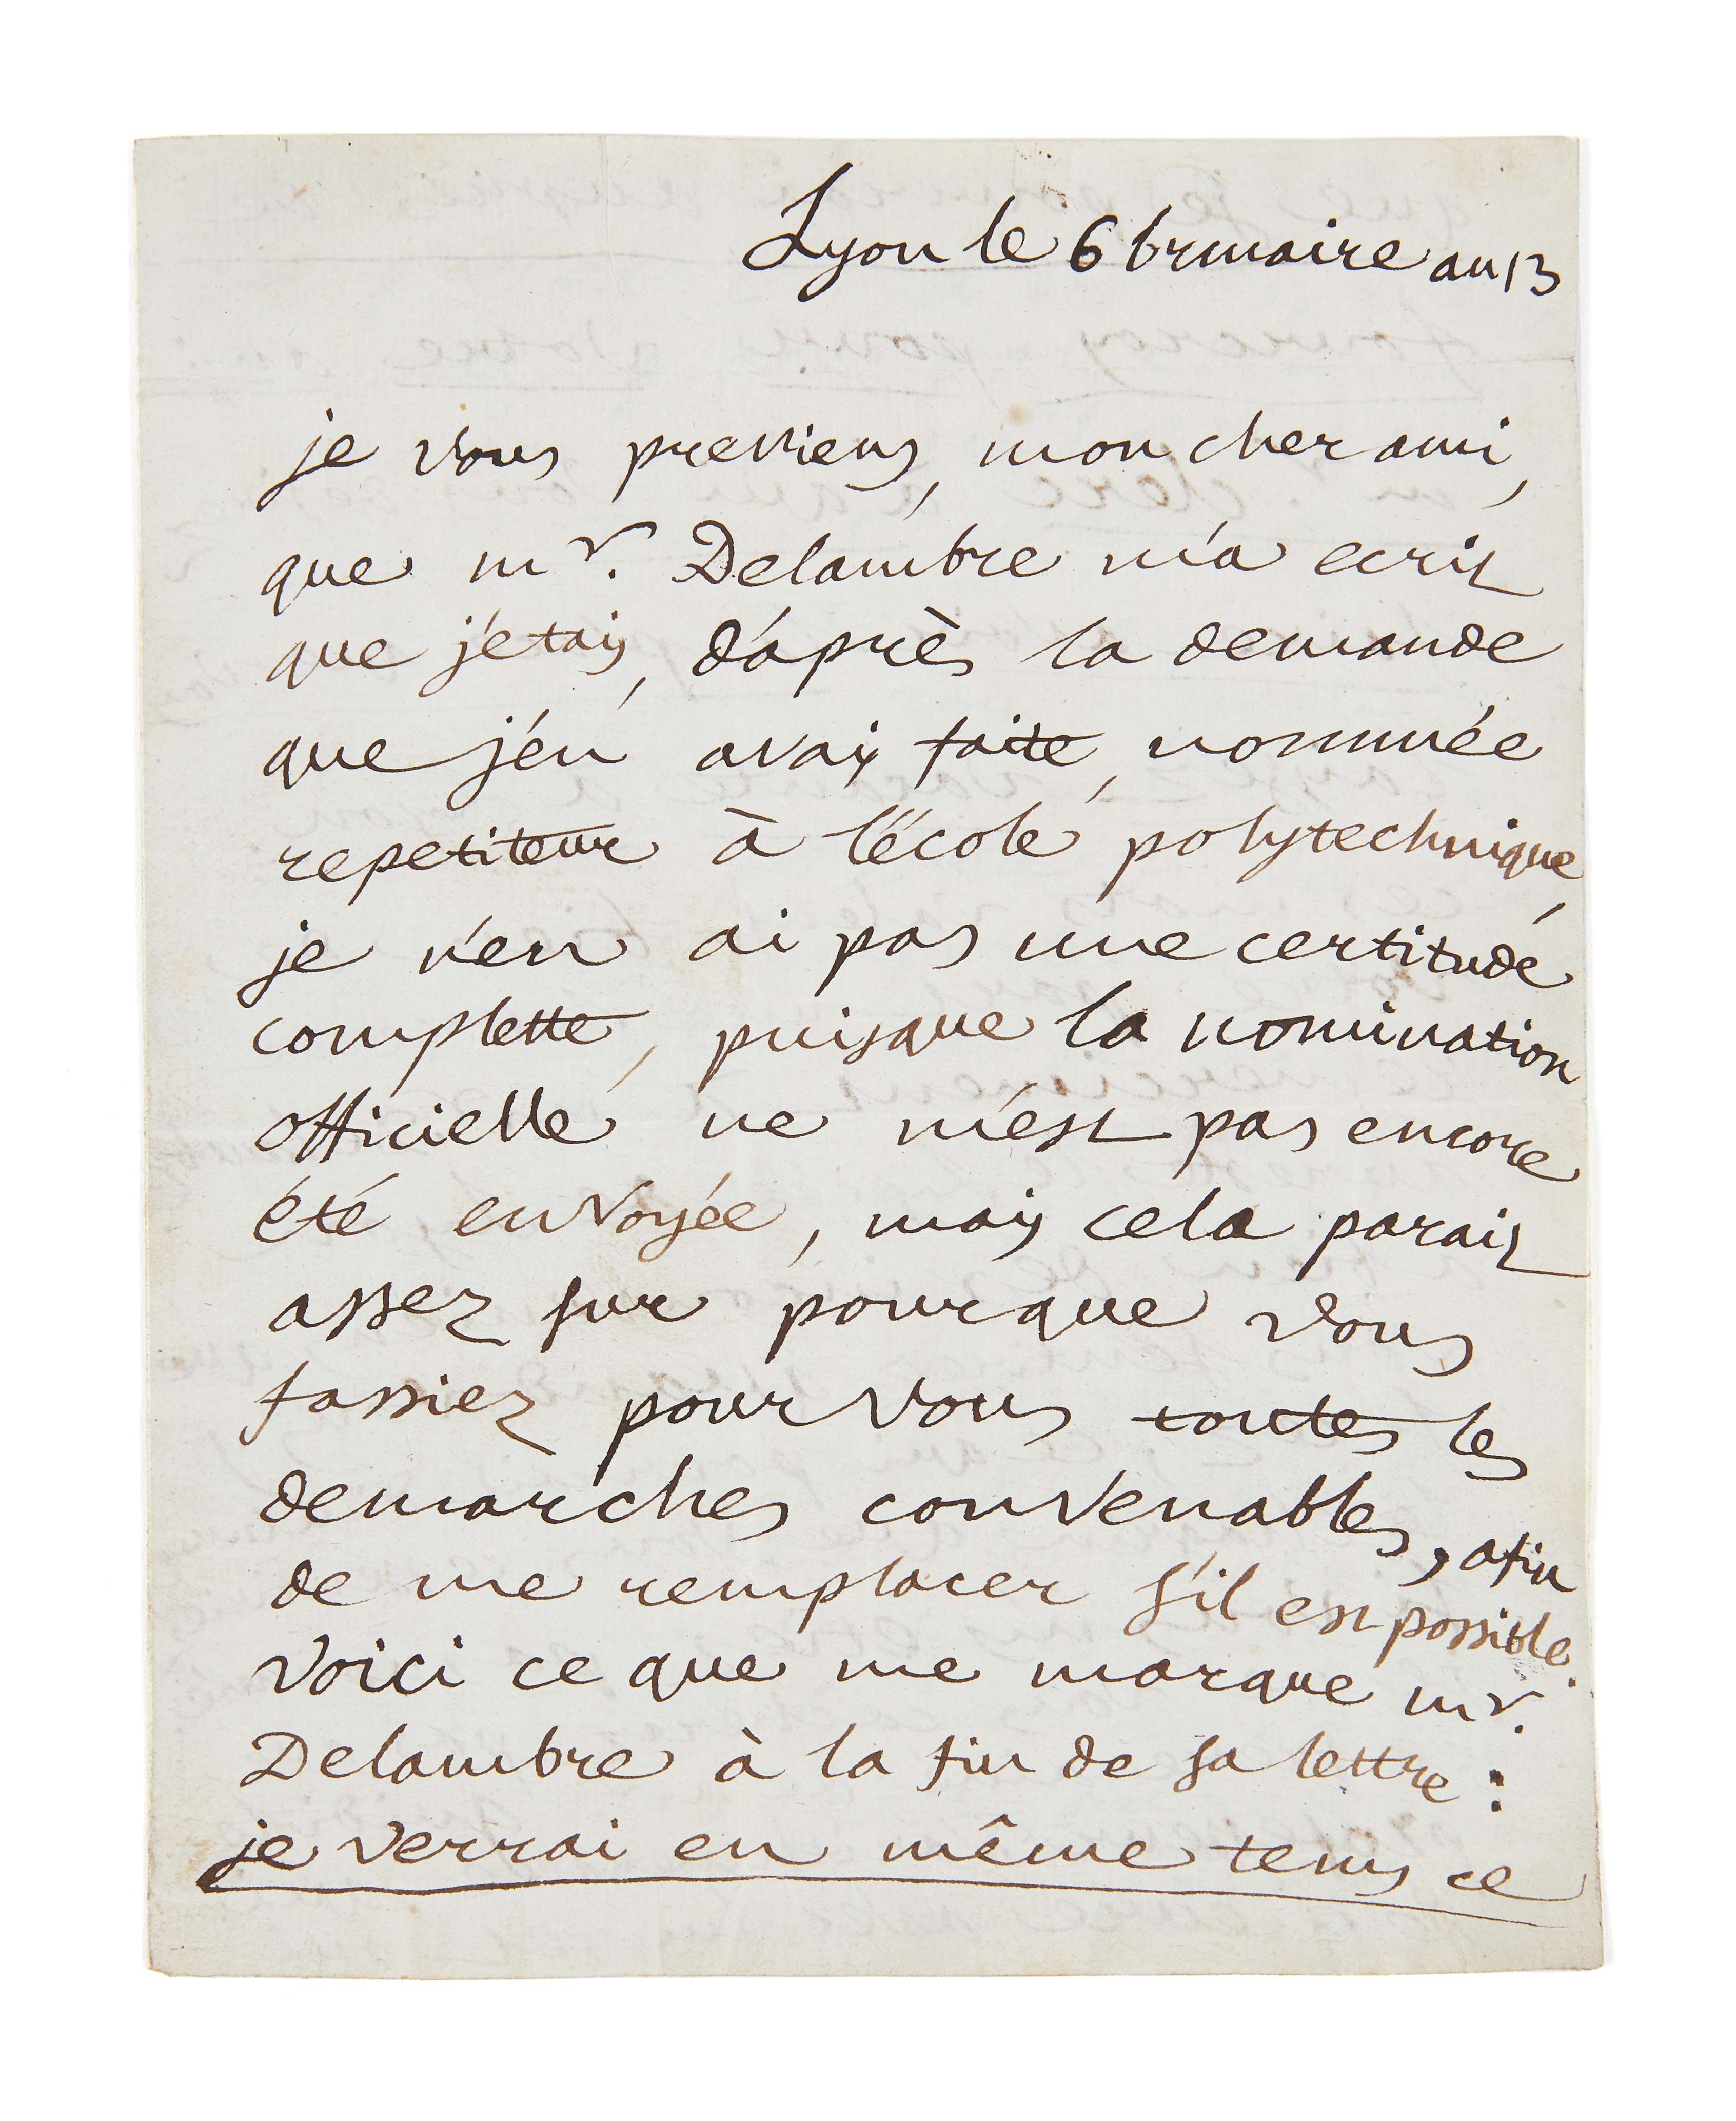 Lyon le 6 brumaire an 13
je vous previens, mon cher ami,
que mr. Delambre m'a ecrit
que j'etais, d'après la demande
que j'en avais faite, nommée
repetiteur à l'école polytechnique,
je n'en ai pas une certitude
complette, puisque la nomination
officielle ne m'est pas encore
été envoyée, mais cela parait
assez sur pour que vous
fassiez pour vous toutes les
demarches convenables, afin
de me remplacer s'il est possible.
Voici ce que me marque mr.
Delambre à la fin de sa lettre :
je verrai en même tems ce